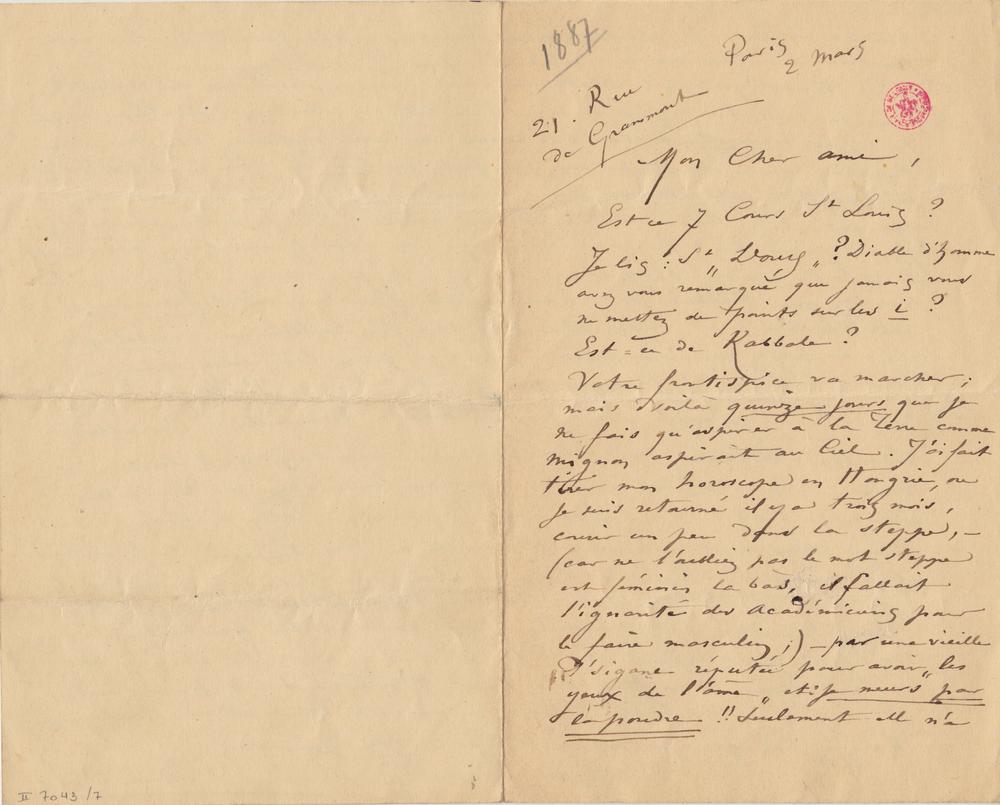 1887
Paris
2 mars
21. Rue
de Grammont
Mon Cher ami,
Est ce 7 Cours St Louis ?
Je lis : St „ Dours „ ? Diable d'homme
avez vous remarqué que jamais vous
ne mettez de points sur les i ?
Est-ce de Kabbale ?
Votre frontispice va marcher ;
mais voilà quinze jours que je
ne fais qu'aspirer à la Terre comme
mignon aspirait au Ciel. J'ai fait
tirer mon horoscope en Hongrie, ou
je suis retourné il y a trois mois,
courir un peu dans la steppe, –
(car ne l'oubliez pas le mot steppe
est féminin la bas, il fallait
l'ignarité des Académiciens pour
le faire masculin ;) – par une vieille
Tsigane réputée pour avoir „ les
yeux de l'âme „ et je meurs par
la poudre !! Seulement elle n'a
II 7043 /7